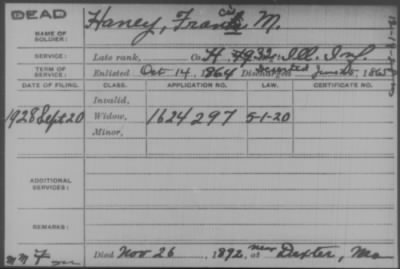 DEAD
NAME OF SOLDIER: Haney, Frank M.
SERVICE: Late rank, Co. H, 32 Ill. Inf.
TERM OF SERVICE: Enlisted Oct 14, 1864 Deserted June 1865
DATE OF FILING. CLASS. APPLICATION NO. LAW. CERTIFICATE NO.
Invalid,
1928 Sept 20 Widow, 1624297 5-1-20
Minor,
ADDITIONAL SERVICES:
REMARKS:
Died Nov 26, 1892, at near Dexter, Mo